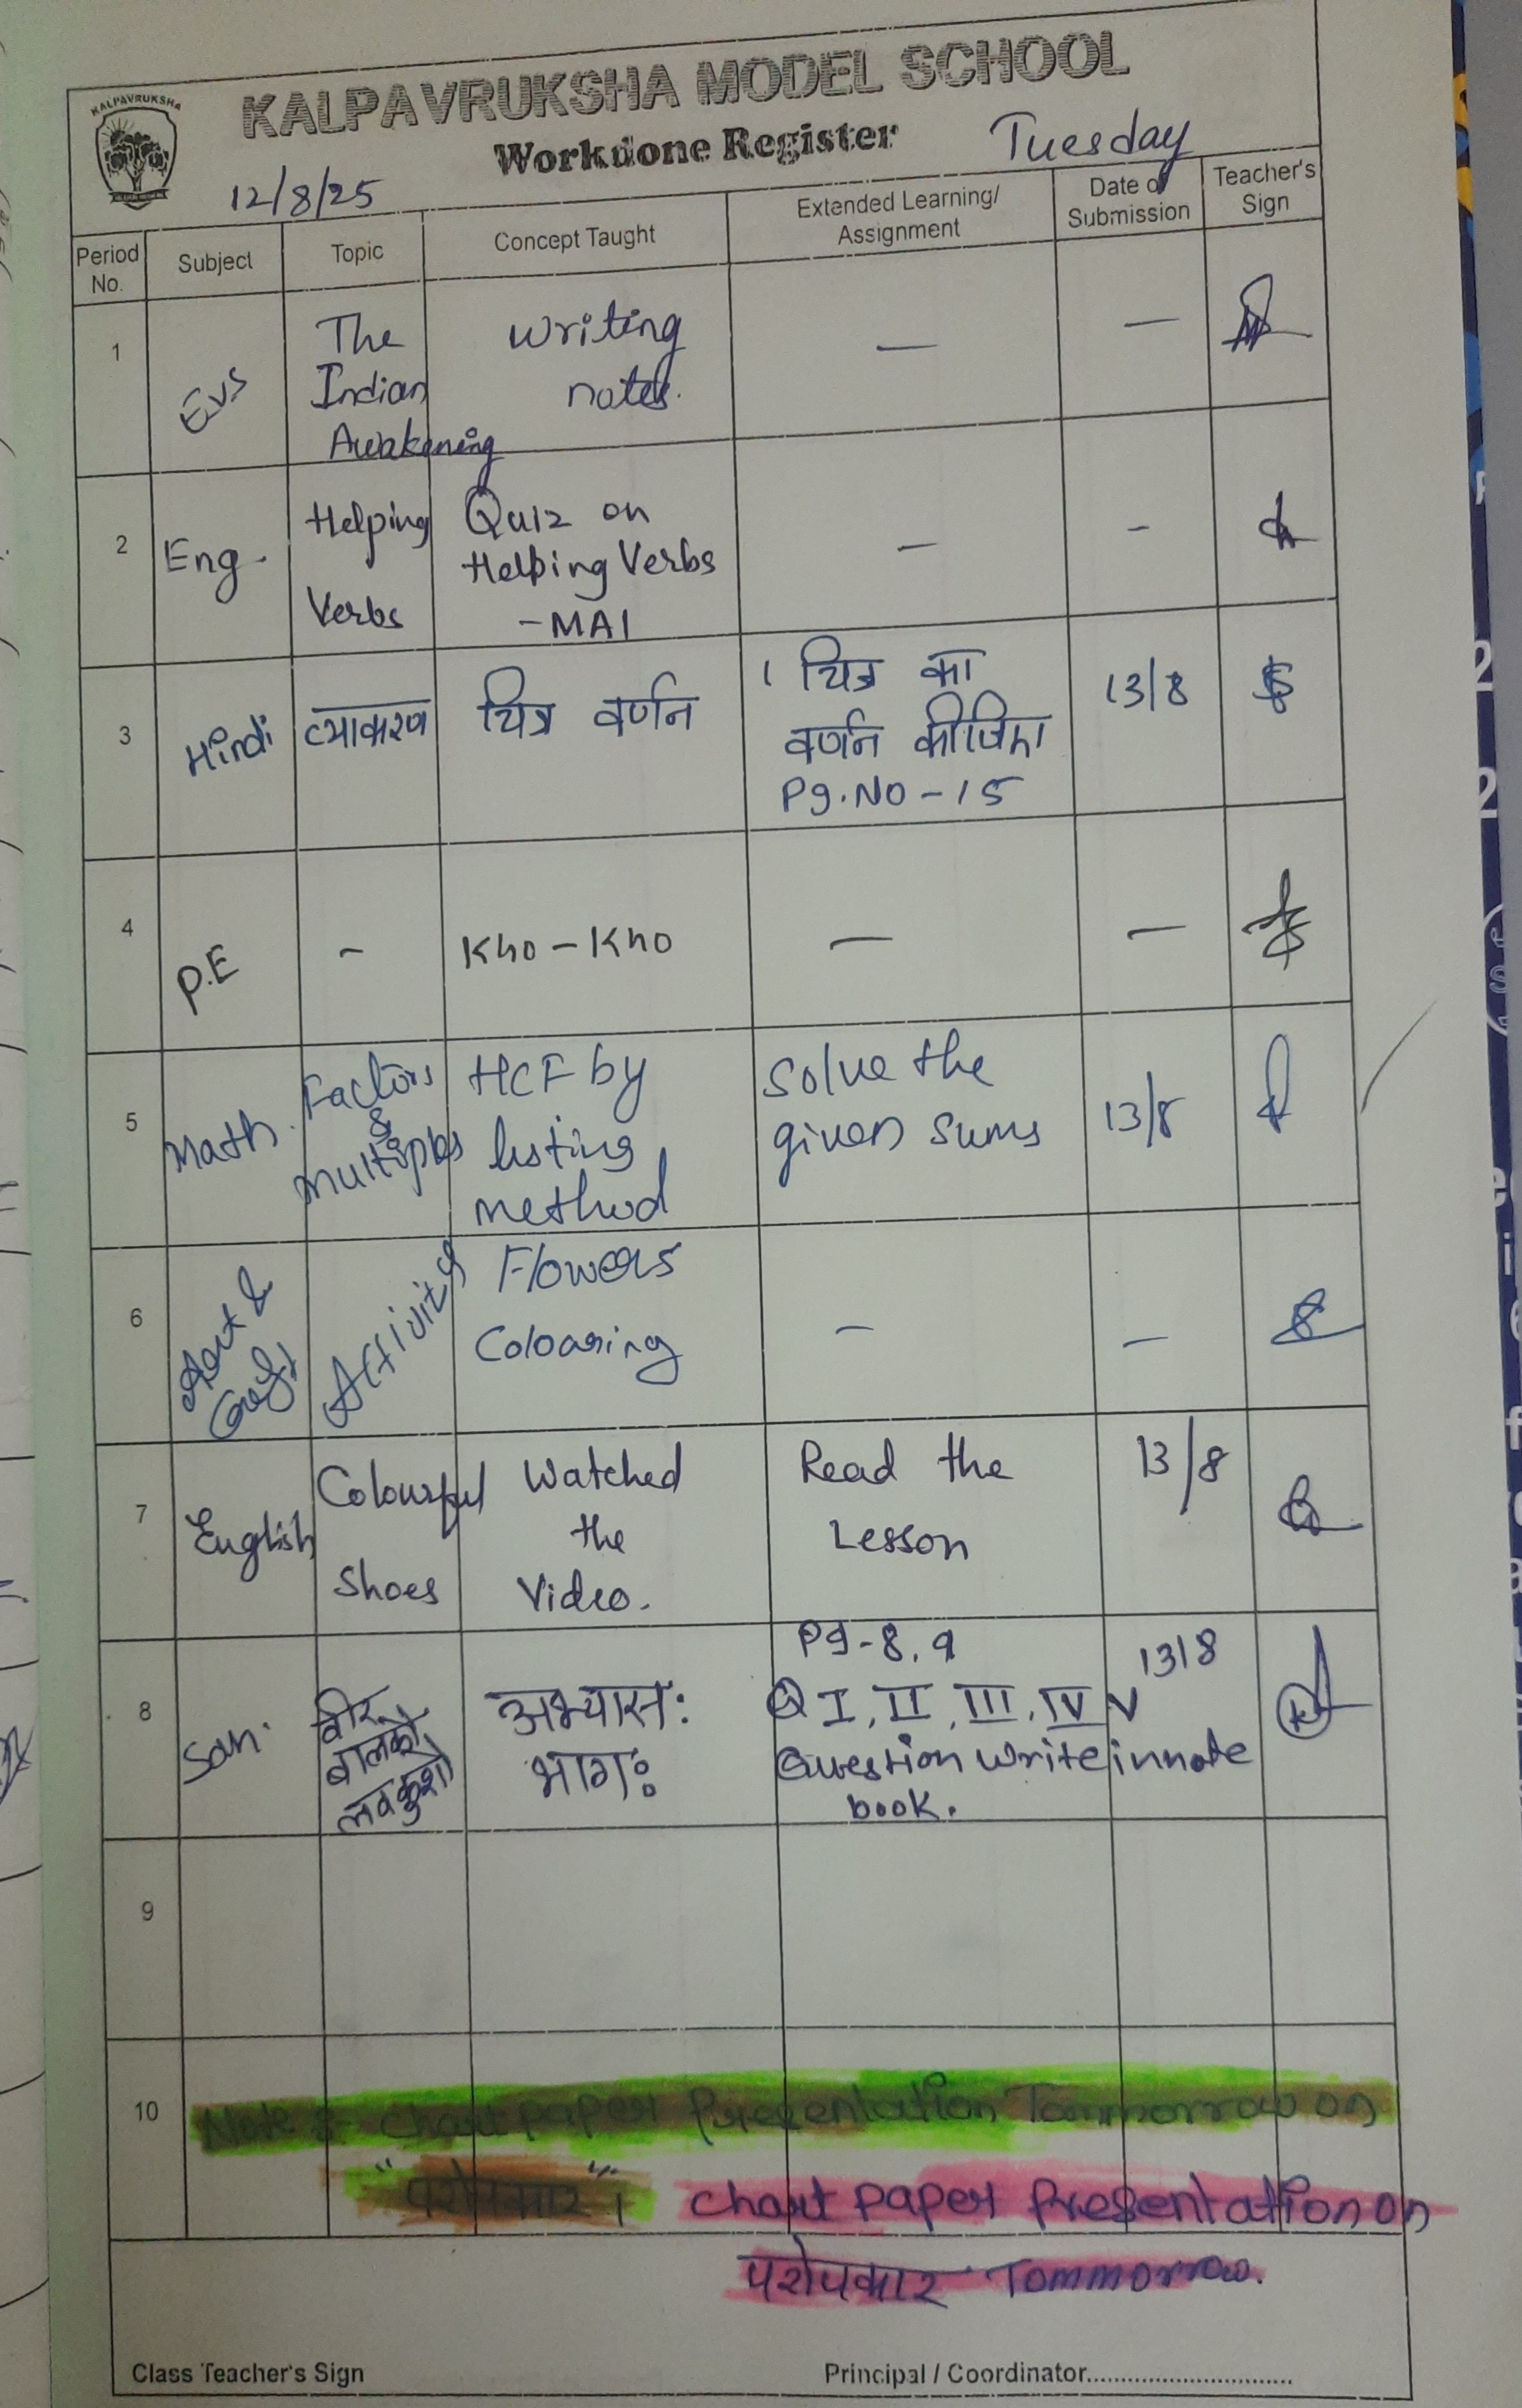 KALPAVRUKSHA
KALPAVRUKSHA MODEL SCHOOL
Workdone Register Tuesday
12/8/25
Period No. Subject Topic Concept Taught Extended Learning/ Assignment Date of Submission Teacher's Sign
1 EVS The Indian Awakening Writing notes. — —
2 Eng. Helping Verbs Quiz on Helping Verbs - MAI — -
3 Hindi व्याकरण चित्र वर्णन 1 चित्र का वर्णन कीजिए Pg.No-15 13/8
4 P.E - Kho-Kho — —
5 Math. Factors & multiples HCF by listing method Solve the given sums 13/8
6 Art & Craft Activity Flowers Coloaring — —
7 English Colourful Shoes Watched the Video. Read the Lesson 13/8
8 San. वीर बालकौ लवकुशौ अभ्यासः भागः Pg-8,9 Q I, II, III, IV V Question write in note book. 13/8
9
10 Note :- Chart paper Presentation Tommorrow on
"परोपकार"। Chart paper Presentation on
परोपकार Tommorrow.
Class Teacher's Sign Principal / Coordinator..............................